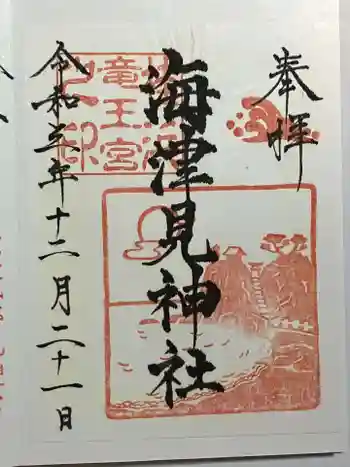 奉拝
海津見神社
竜王宮
之印
令和五年十二月二十一日